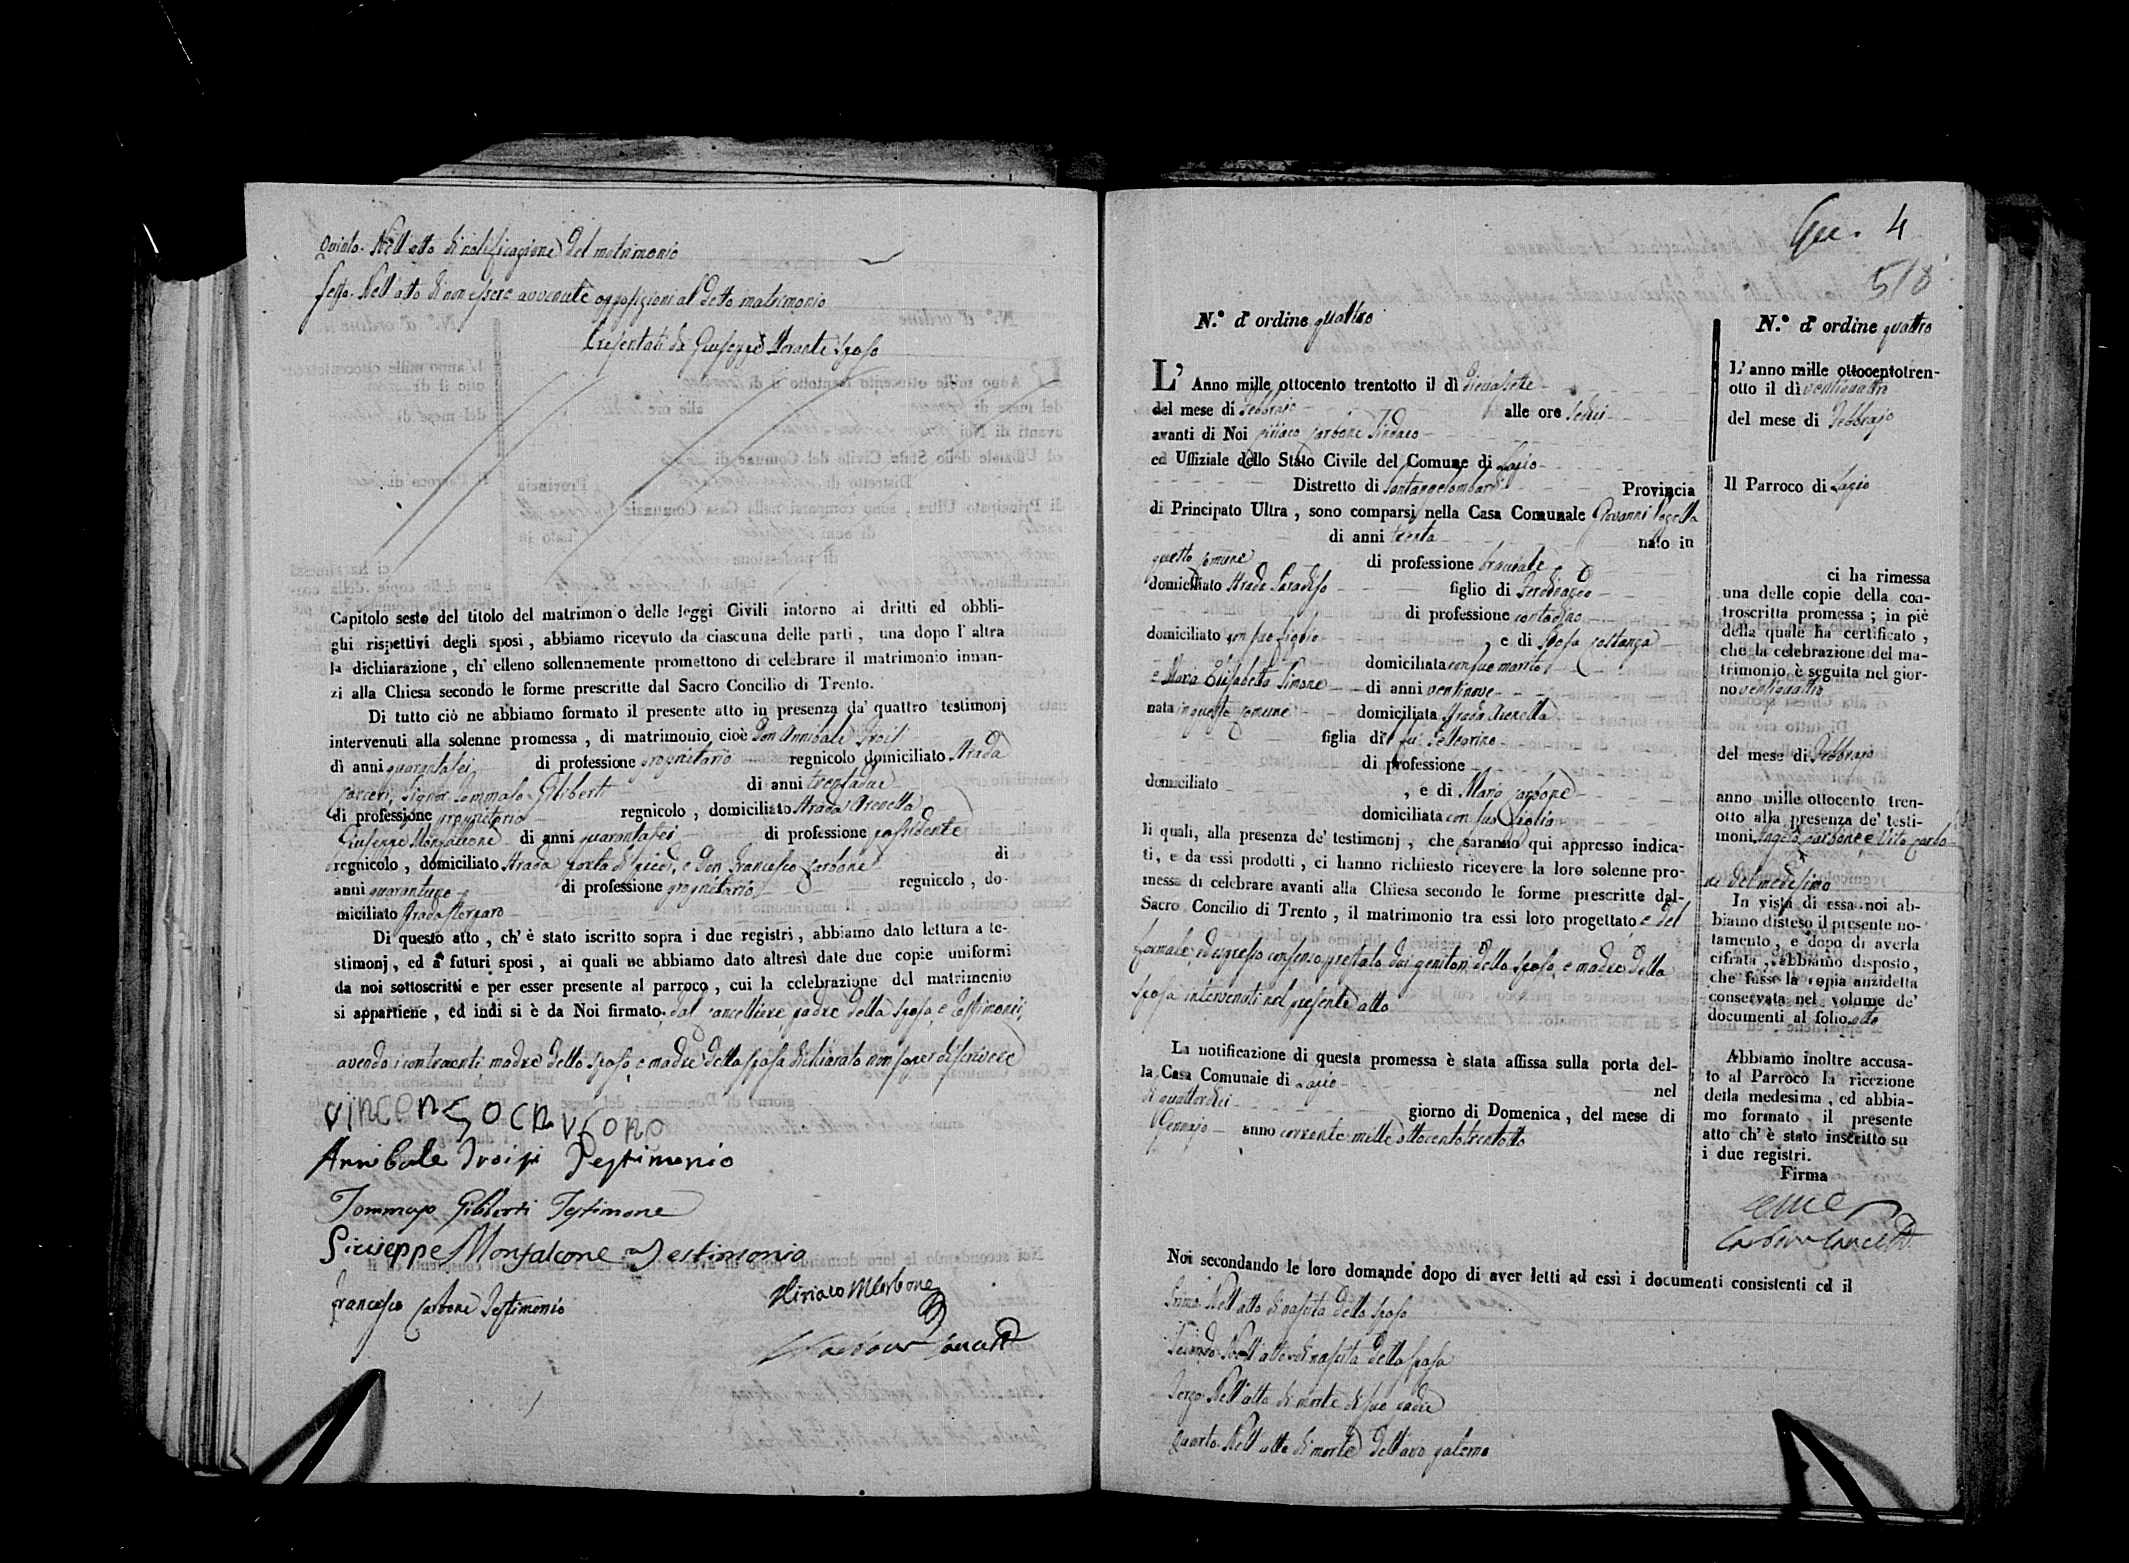 Quinto. Nell'atto di notificazione del matrimonio
Sesto. Nell'atto di non essere avvenute opposizioni al detto matrimonio
Presentati da Giuseppe Morante sposo
Capitolo sesto del titolo del matrimonio delle leggi Civili intorno ai dritti ed obbli-
ghi rispettivi degli sposi, abbiamo ricevuto da ciascuna delle parti, una dopo l'altra
la dichiarazione, ch'elleno sollennemente promettono di celebrare il matrimonio innan-
zi alla Chiesa secondo le forme prescritte dal Sacro Concilio di Trento.
Di tutto ciò ne abbiamo formato il presente atto in presenza da' quattro testimonj
intervenuti alla solenne promessa, di matrimonio cioè Don Annibale Troisi
di anni quarantasei di professione proprietario regnicolo domiciliato Strada
Carceri, Signor Tommaso Gliberti di anni trentadue
di professione proprietario regnicolo, domiciliato Strada Arenella
Giuseppe Monfalcone di anni quarantasei di professione possidente
regnicolo, domiciliato Strada porta di piedi, e Don Francesco Carbone di
anni quarantuno di professione proprietario regnicolo, do-
miciliato Strada
Di questo atto, ch'è stato iscritto sopra i due registri, abbiamo dato lettura a te-
stimonj, ed a' futuri sposi, ai quali ne abbiamo dato altresì date due copie uniformi
da noi sottoscritti e per esser presente al parroco, cui la celebrazione del matrimenio
si appartiene, ed indi si è da Noi firmato dal cancelliere, padre della sposa, e testimonii,
avendo i contraenti, madre dello sposo, e madre della sposa dichiarato non saper di scrivere
Annibale Troisi Testimonio
Tommaso Gliberti Testimone
Giuseppe Monfalcone Testimonio
Francesco Carbone Testimonio
Ciriaco Carbone
4
5/8
N.º d'ordine quattro
L'Anno mille ottocento trentotto il dì diecisette
del mese di Febbrajo alle ore sedici
avanti di Noi Ciriaco Carbone Sindaco
ed Uffiziale dello Stato Civile del Comune di Lagio
Distretto di Santangelombardi Provincia
di Principato Ultra, sono comparsi nella Casa Comunale Giovanni
di anni trenta nato in
questo comune di professione bracciale
domiciliato Strada Paradiso figlio di
di professione contadino
domiciliato con suo figlio, e di Sposa Costanza
domiciliata con suo marito
e Maria Elisabetta Simone di anni ventinove
nata in questo comune domiciliata Strada Arenella
figlia di fu Pellegrino
di professione
domiciliato, e di Maria Carbone
domiciliata con sua figlia
li quali, alla presenza de' testimonj, che saranno qui appresso indica-
ti, e da essi prodotti, ci hanno richiesto ricevere la loro solenne pro-
messa di celebrare avanti alla Chiesa secondo le forme prescritte dal
Sacro Concilio di Trento, il matrimonio tra essi loro progettato e del
formale, ed espresso consenso prestato dai genitori dello sposo, e madre della
sposa intervenuti nel presente atto
La notificazione di questa promessa è stata affissa sulla porta del-
la Casa Comunale di Lagio nel
di quattordici giorno di Domenica, del mese di
Gennajo anno corrente mille ottocentotrentotto
Noi secondando le loro domande dopo di aver letti ad essi i documenti consistenti ed il
Primo. Nell'atto di nascita dello sposo
Secondo. Nell'atto di nascita della sposa
Terzo. Nell'atto di morte di suo padre
Quarto. Nell'atto di morte dell'avo paterno
N.º d'ordine quattro
L'anno mille ottocentotren-
otto il dì ventiquattro
del mese di Febbrajo
Il Parroco di Lagio
ci ha rimessa
una delle copie della con-
troscritta promessa; in piè
della quale ha certificato,
che la celebrazione del ma-
trimonio è seguita nel gior-
no ventiquattro
del mese di Febbrajo
anno mille ottocento tren-
otto alla presenza de' testi-
moni Angelo Carbone e Vito Carbo-
ne del medesimo
In vista di essa noi ab-
biamo disteso il presente no-
tamento, e dopo di averla
cifrata, abbiamo disposto,
che fusse la copia anzidetta
conservata nel volume de'
documenti al folio otto
Abbiamo inoltre accusa-
to al Parroco la ricezione
della medesima, ed abbia-
mo formato il presente
atto ch'è stato inscritto su
i due registri.
Firma